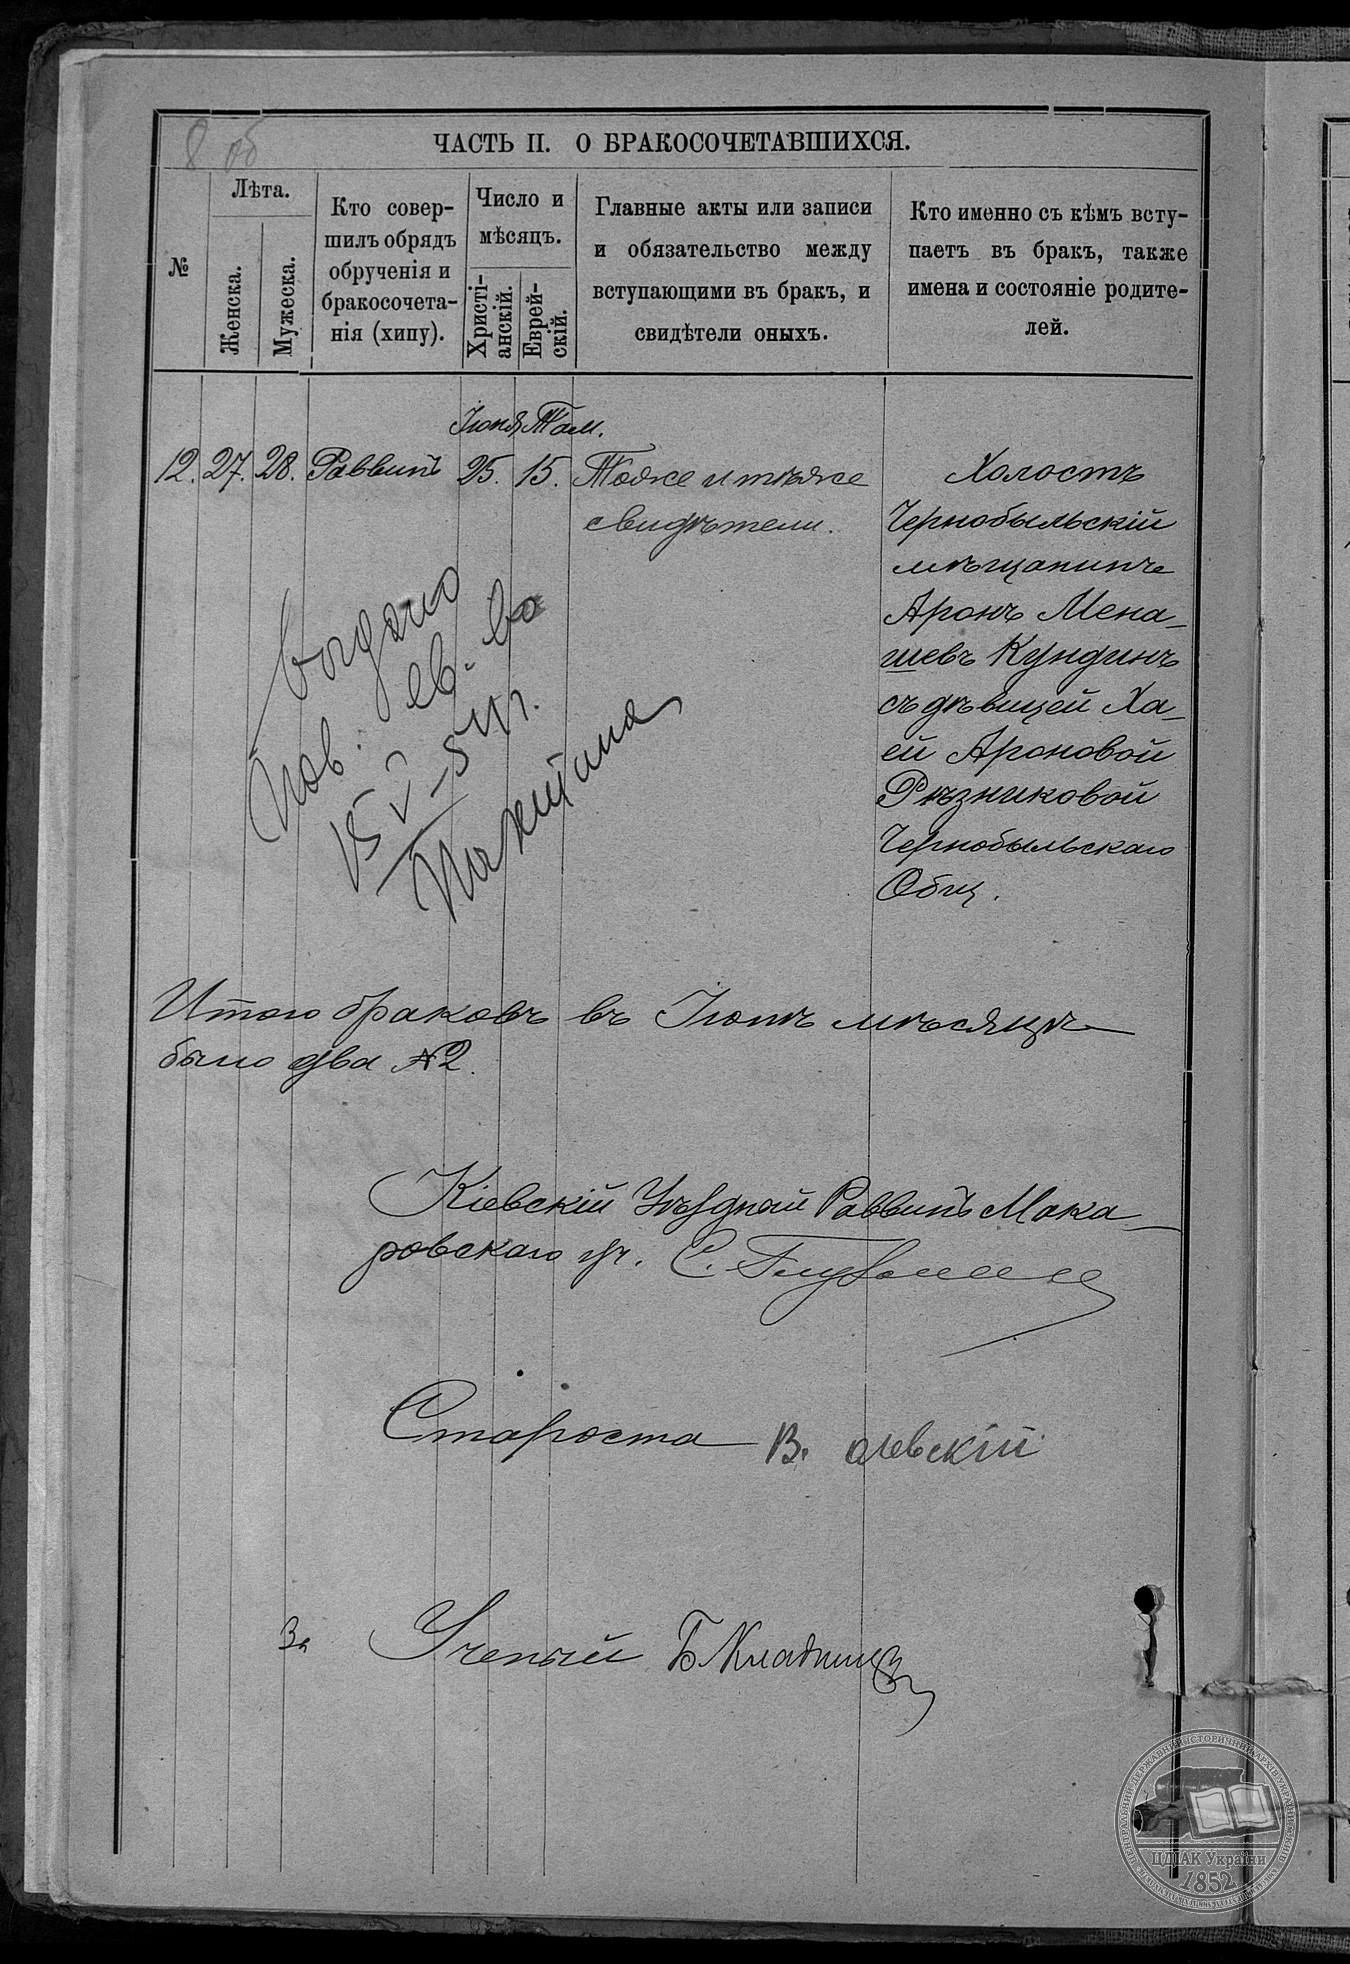 8 об
ЧАСТЬ II. О БРАКОСОЧЕТАВШИХСЯ.
№
Лѣта.
Женска.
Мужеска.
Кто совер-
шилъ обрядъ
обрученія и
бракосочета-
нія (хипу).
Число и
мѣсяцъ.
Христі-
анскій.
Еврей-
скій.
Главные акты или записи
и обязательство между
вступающими въ бракъ, и
свидѣтели оныхъ.
Кто именно съ кѣмъ всту-
паетъ въ бракъ, также
имена и состояніе родите-
лей.
Іюня Там.
12. 27. 28. Раввинъ 25. 15. Тоже и тѣже
свидѣтели.
Холостъ
Чернобыльскій
мѣщанинъ
Аронъ Мена-
шевъ Кундинъ
съ дѣвицей Ха-
ей Ароновой
Рѣзниковой
Чернобыльскаго
Общ.
пов. св-во
Итого браковъ въ Іюнѣ мѣсяцѣ
было два №2.
Кіевскій Уѣздный Раввинъ Мака-
ровскаго уч. С.
Староста В. левскій
За Ученый Б.
ЦЕНТРАЛЬНИЙ ДЕРЖАВНИЙ ІСТОРИЧНИЙ АРХІВ УКРАЇНИ
ЦДІАК України
1852